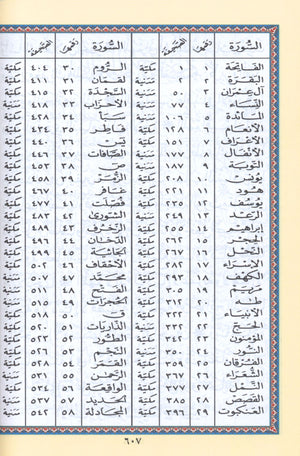 السُّورَة رقمها الصفحة السُّورَة رقمها الصفحة
الفَاتِحَة ١ ١ مكيّة الرُّوم ٣٠ ٤٠٤ مكيّة
البَقَرَة ٢ ٢ مَدنية لقمَان ٣١ ٤١١ مكيّة
آل عِمرَان ٣ ٥٠ مَدنية السَّجْدَة ٣٢ ٤١٥ مكيّة
النِّسَاء ٤ ٧٧ مَدنية الأحزَاب ٣٣ ٤١٨ مَدنية
المَائدة ٥ ١٠٦ مَدنية سَبَأ ٣٤ ٤٢٨ مكيّة
الأنعَام ٦ ١٢٨ مكيّة فَاطِر ٣٥ ٤٣٤ مكيّة
الأعرَاف ٧ ١٥١ مكيّة يسٓ ٣٦ ٤٤٠ مكيّة
الأنفَال ٨ ١٧٧ مَدنية الصَّافات ٣٧ ٤٤٦ مكيّة
التوبَة ٩ ١٨٧ مَدنية صٓ ٣٨ ٤٥٣ مكيّة
يُونس ١٠ ٢٠٨ مكيّة الزُّمَر ٣٩ ٤٥٨ مكيّة
هُود ١١ ٢٢١ مكيّة غَافر ٤٠ ٤٦٧ مكيّة
يُوسُف ١٢ ٢٣٥ مكيّة فُصّلَت ٤١ ٤٧٧ مكيّة
الرّعد ١٣ ٢٤٩ مَدنية الشّورى ٤٢ ٤٨٣ مكيّة
إبراهيم ١٤ ٢٥٥ مكيّة الزّخرُف ٤٣ ٤٨٩ مكيّة
الحِجْر ١٥ ٢٦٢ مكيّة الدّخان ٤٤ ٤٩٦ مكيّة
النّحْل ١٦ ٢٦٧ مكيّة الجَاثيَة ٤٥ ٤٩٩ مكيّة
الإسْرَاء ١٧ ٢٨٢ مكيّة الأحقاف ٤٦ ٥٠٢ مكيّة
الكهْف ١٨ ٢٩٣ مكيّة محَمّد ٤٧ ٥٠٧ مَدنية
مَريَم ١٩ ٣٠٥ مكيّة الفَتْح ٤٨ ٥١١ مَدنية
طه ٢٠ ٣١٢ مكيّة الحُجرَات ٤٩ ٥١٥ مَدنية
الأنبيَاء ٢١ ٣٢٢ مكيّة قٓ ٥٠ ٥١٨ مكيّة
الحَجّ ٢٢ ٣٣٢ مَدنية الذّاريَات ٥١ ٥٢٠ مكيّة
المؤمنون ٢٣ ٣٤٢ مكيّة الطّور ٥٢ ٥٢٣ مكيّة
النُّور ٢٤ ٣٥٠ مَدنية النّجْم ٥٣ ٥٢٦ مكيّة
الفُرقان ٢٥ ٣٥٩ مكيّة القَمَر ٥٤ ٥٢٨ مكيّة
الشّعَرَاء ٢٦ ٣٦٧ مكيّة الرّحمٰن ٥٥ ٥٣١ مَدنية
النَّمْل ٢٧ ٣٧٧ مكيّة الواقِعَة ٥٦ ٥٣٤ مكيّة
القَصَص ٢٨ ٣٨٥ مكيّة الحَديد ٥٧ ٥٣٧ مَدنية
العَنكبوت ٢٩ ٣٩٦ مكيّة المجَادلة ٥٨ ٥٤٢ مَدنية
٦٠٧